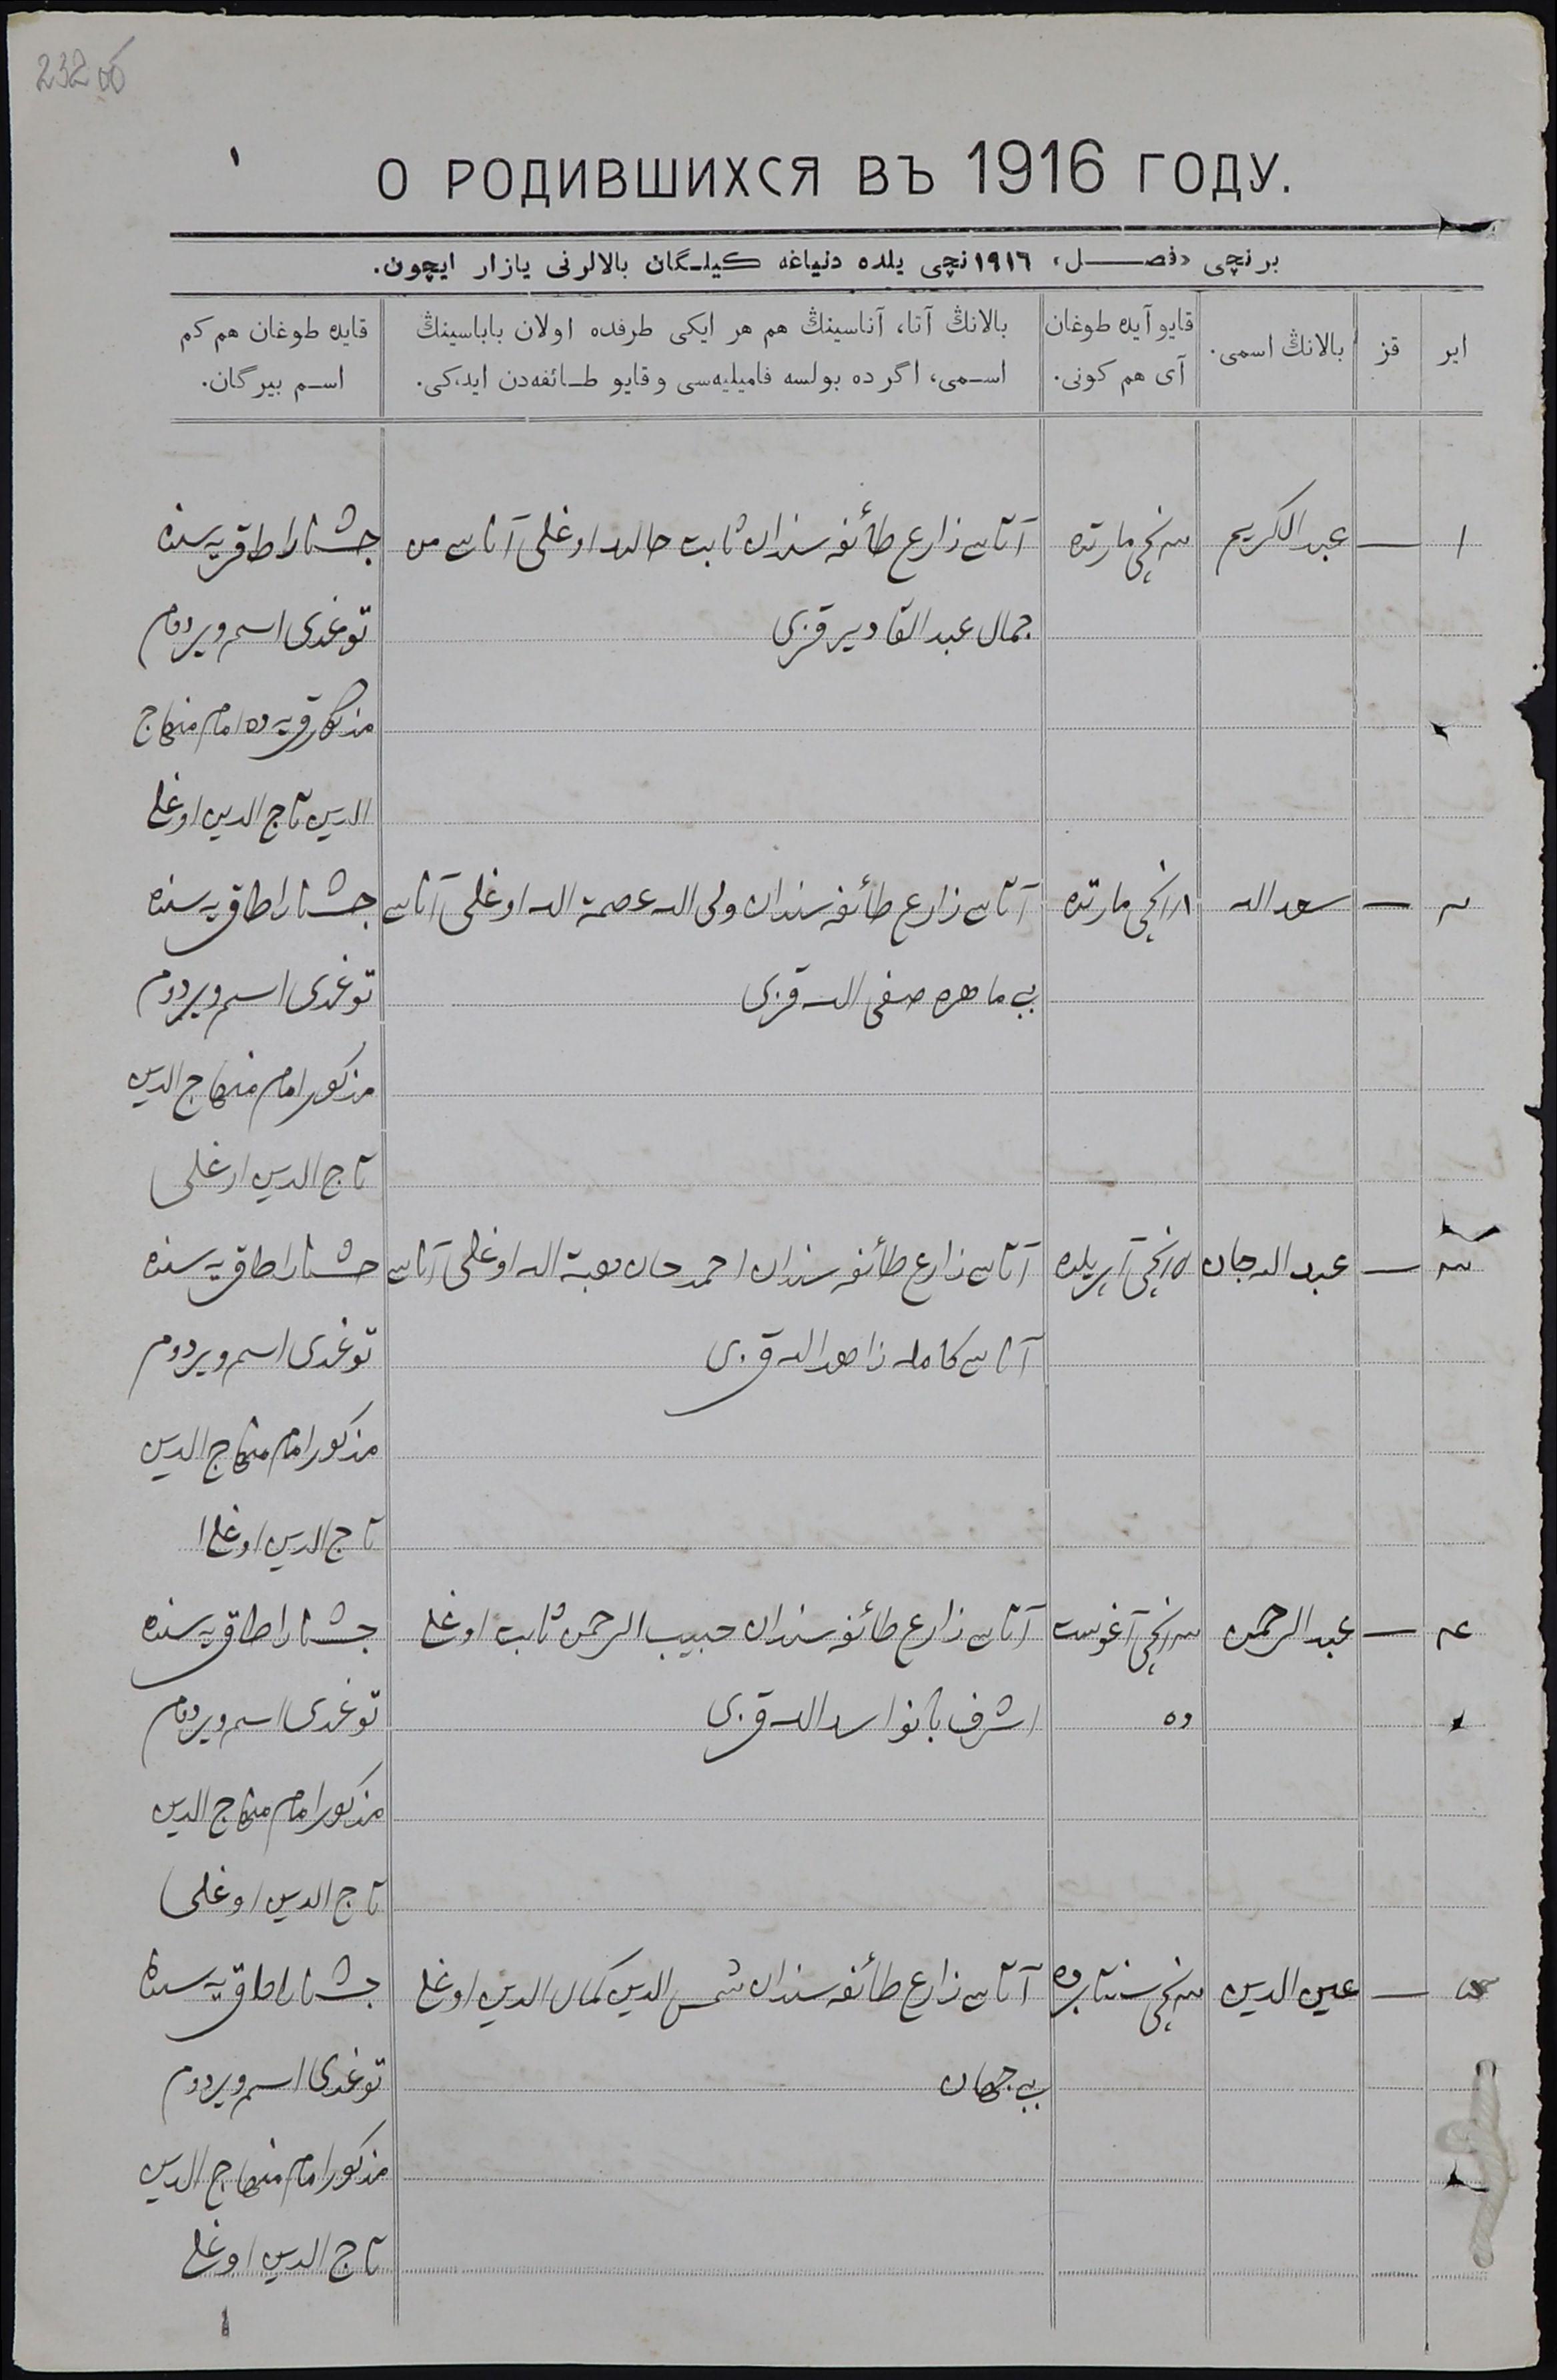 232 об
١
О РОДИВШИХСЯ ВЪ 1916 ГОДУ.
برنچی «فصل» ١٩١٦نچی يلده دنياغه كيلگان بالالرنی يازار ايچون.
اير
قز
بالانڭ اسمی.
قايو آيده طوغان
آی هم كونی.
بالانڭ آتا، آناسينڭ هم هر ايكی طرفده اولان باباسينڭ
اسمی، اگر ده بولسه فاميليه‌سی وقايو طائفه‌دن ايدكی.
قايده طوغان هم كم
اسم بيرگان.
١ — عبد الكريم نچی مارتده آتاسی زارع طائفه سندان ثابت اوغلی آناسی
جمال عبد القادير قزی
توغدی اسم ويردوم
مذكور قريه ده امام منهاج
الدين تاج الدين اوغلی
٢ — سعد الله نچی مارتده آتاسی زارع طائفه سندان ولی الله عصمة الله اوغلی آناسی
بی ماهره صفی الله قزی
توغدی اسم ويردوم
مذكور امام منهاج الدين
تاج الدين اوغلی
٣ — عبد الله جان نچی آپريلده آتاسی زارع طائفه سندان احمد جان هبة الله اوغلی آناسی
آناسی كامله زاهد الله قزی
توغدی اسم ويردوم
مذكور امام منهاج الدين
تاج الدين اوغلی
٤ — عبد الرحمن نچی آغوست آتاسی زارع طائفه سندان حبيب الرحمن ثابت اوغلی
ده اشرف بانو اسد الله قزی
توغدی اسم ويردوم
مذكور امام منهاج الدين
تاج الدين اوغلی
٥ — عين الدين نچی سنتابرده آتاسی زارع طائفه سندان شمس الدين كمال الدين اوغلی
بی جهان
توغدی اسم ويردوم
مذكور امام منهاج الدين
تاج الدين اوغلی